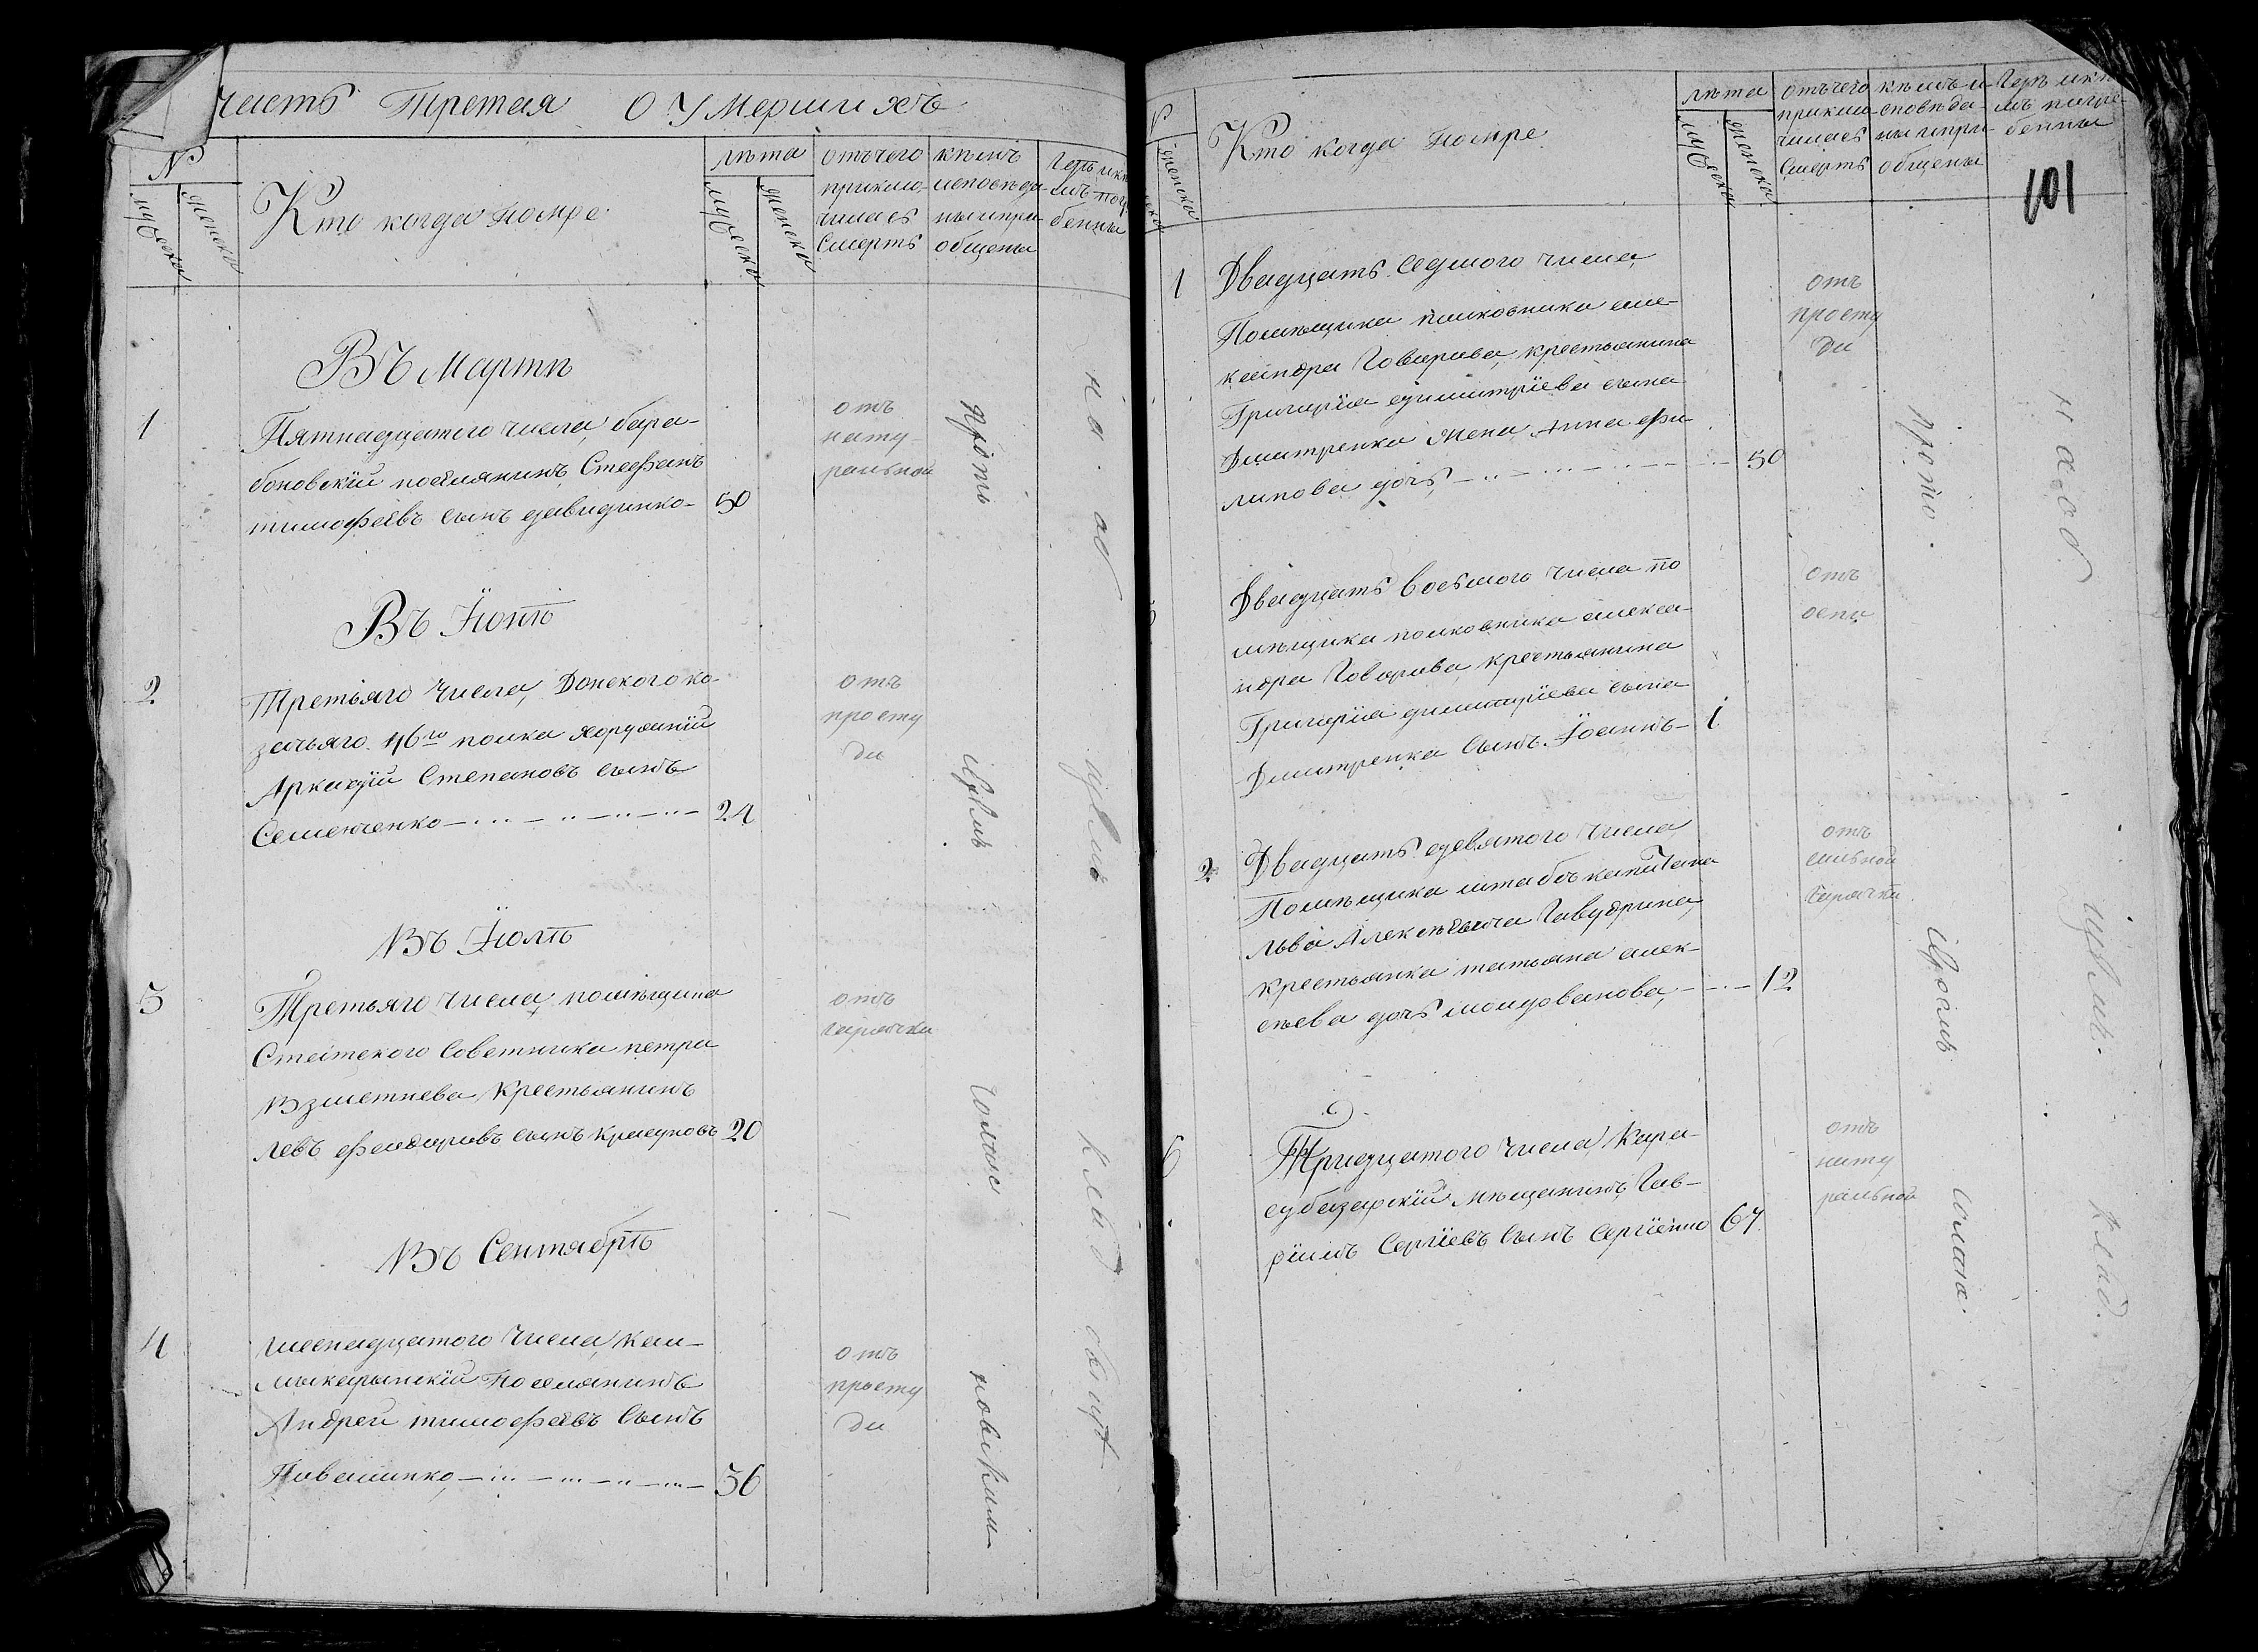 Часть Третая О Умершихъ
№
мужеска
женска
Кто когда помре
лѣта
мужеска
женска
отъчего
приклю-
чилась
Смерть
кѣмъ
исповѣда-
ны и при-
общены
бенны
Въ Мартѣ
1
Пятнадцатого числа, бара-
боновскїй посѣлянинъ Стефанъ
тимофѣевъ сынъ давиденко- 50
отъ
нату-
ральной
Въ Їюнѣ
2
Третьяго числа, Донского ка-
зачьяго 46го полка хорунжїй
Аркадїй Степановъ сынъ
Семенченко 24
отъ
просту
ды
Въ Їюлѣ
3
Третьяго числа, помѣщика
Статского Советника петра
Взметнева Крестьянинъ
левъ феодоровъ сынъ красуновъ 20
отъ
горячки
Въ Сентябрѣ
4
шеснадцатого числа,
Посѣлянинъ
Андрей тимофѣевъ Сынъ
Ивашинко, 56
отъ
просту
ды
Протъ
Іерѣмъ
на об
щѣмъ
клад
бищѣ
№
женска
Кто когда помре
лѣта
мужеска
женска
отъчего
приклю-
чилась
Смерть
кѣмъ и-
сповѣда-
ны и при-
общены
Где и кѣ
мъ погре-
бенны
101
1
Двадцать Седмого числа,
Помѣщика полковника але-
ксандра Говорова, крестьянина
Григорїя димитрїева сына
Дмитренка жена Анна фи-
липова дочь, 50
отъ
просту
ды
5
Двадцать восьмого числа по
мѣщика полковника алекса-
ндра Говорова, крестьянина
Григорїя димитрїева сына
Дмитренка Сынъ Їоаннъ- 1
отъ
оспы
2
Двадцать девятого числа
Помѣщика штабсъ капитана
льва Алексѣевича Гавудрина,
крестьянка татьяна алек-
сѣева дочь молдованова, 12
отъ
сильной
горячки
6
Тридцатого числа, Кара-
субазарскїй мѣщанинъ Гав-
рїилъ Сергїевъ Сынъ Сергїенко 67
отъ
нату
ральной
Прото
Іереомъ
на об
щѣмъ
клад.